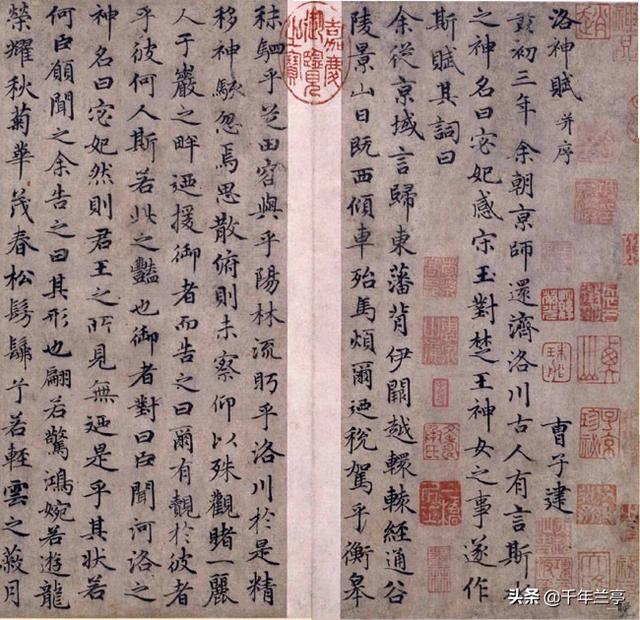 洛神賦 并序 曹子建
黃初三年余朝京師還濟洛川古人有言斯水
之神名曰宓妃感宋玉對楚王神女之事遂作
斯賦其詞曰
余從京域言歸東藩背伊闕越轘轅經通谷
陵景山日既西傾車殆馬煩爾迺稅駕乎衡皋
秣駟乎芝田容與乎陽林流眄乎洛川於是精
移神駭忽焉思散俯則未察仰以殊觀睹一麗
人于巖之畔迺援御者而告之曰爾有覿於彼者
乎彼何人斯若此之豔也御者對曰臣聞河洛之
神名曰宓妃然則君王之所見無迺是乎其狀若
何臣願聞之余告之曰其形也翩若驚鴻婉若遊龍
榮耀秋菊華茂春松髣髴兮若輕雲之蔽月
嘉慶御覽之寶
头条 @千年兰亭